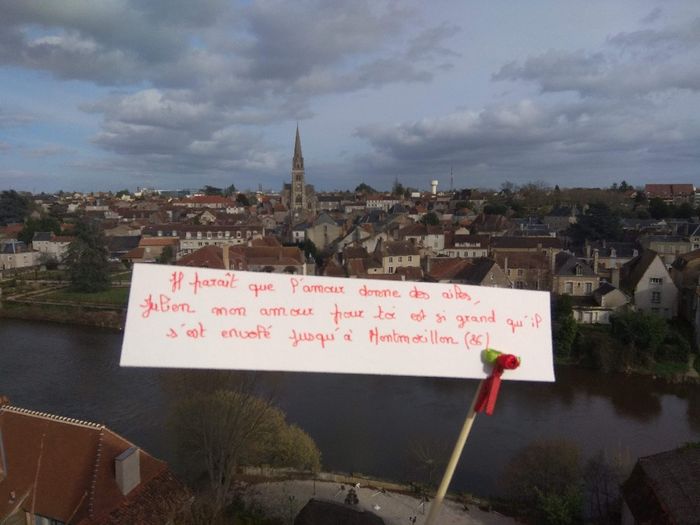 Il paraît que l'amour donne des ailes,
Julien mon amour pour toi est si grand qu'il
s'est envolé jusqu'à Montmorillon (86)